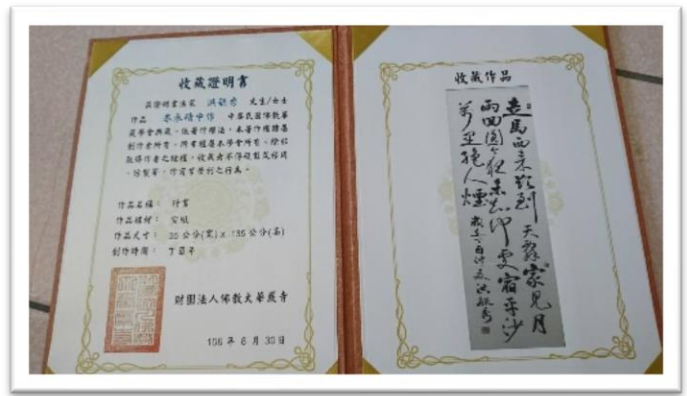 收藏證明書
茲證明書法家 先生/女士
作品 磧中作 中華民國佛教華
嚴學會典藏。依著作權法，本著作權歸屬
創作者所有，所有權屬本學會所有，除於
取得作者之授權，收藏者不得複製或移用
、仿製等，作商業營利之行為。
作品名稱： 行書
作品裱材： 宣紙
作品尺寸： 35公分(寬)x 135公分(高)
創作時間： 丁酉年
財團法人佛教大華嚴寺
106年6月30日
收藏作品
走馬西來欲到天辭家見月
兩回圓今夜未知何處宿平沙
萬里絕人煙